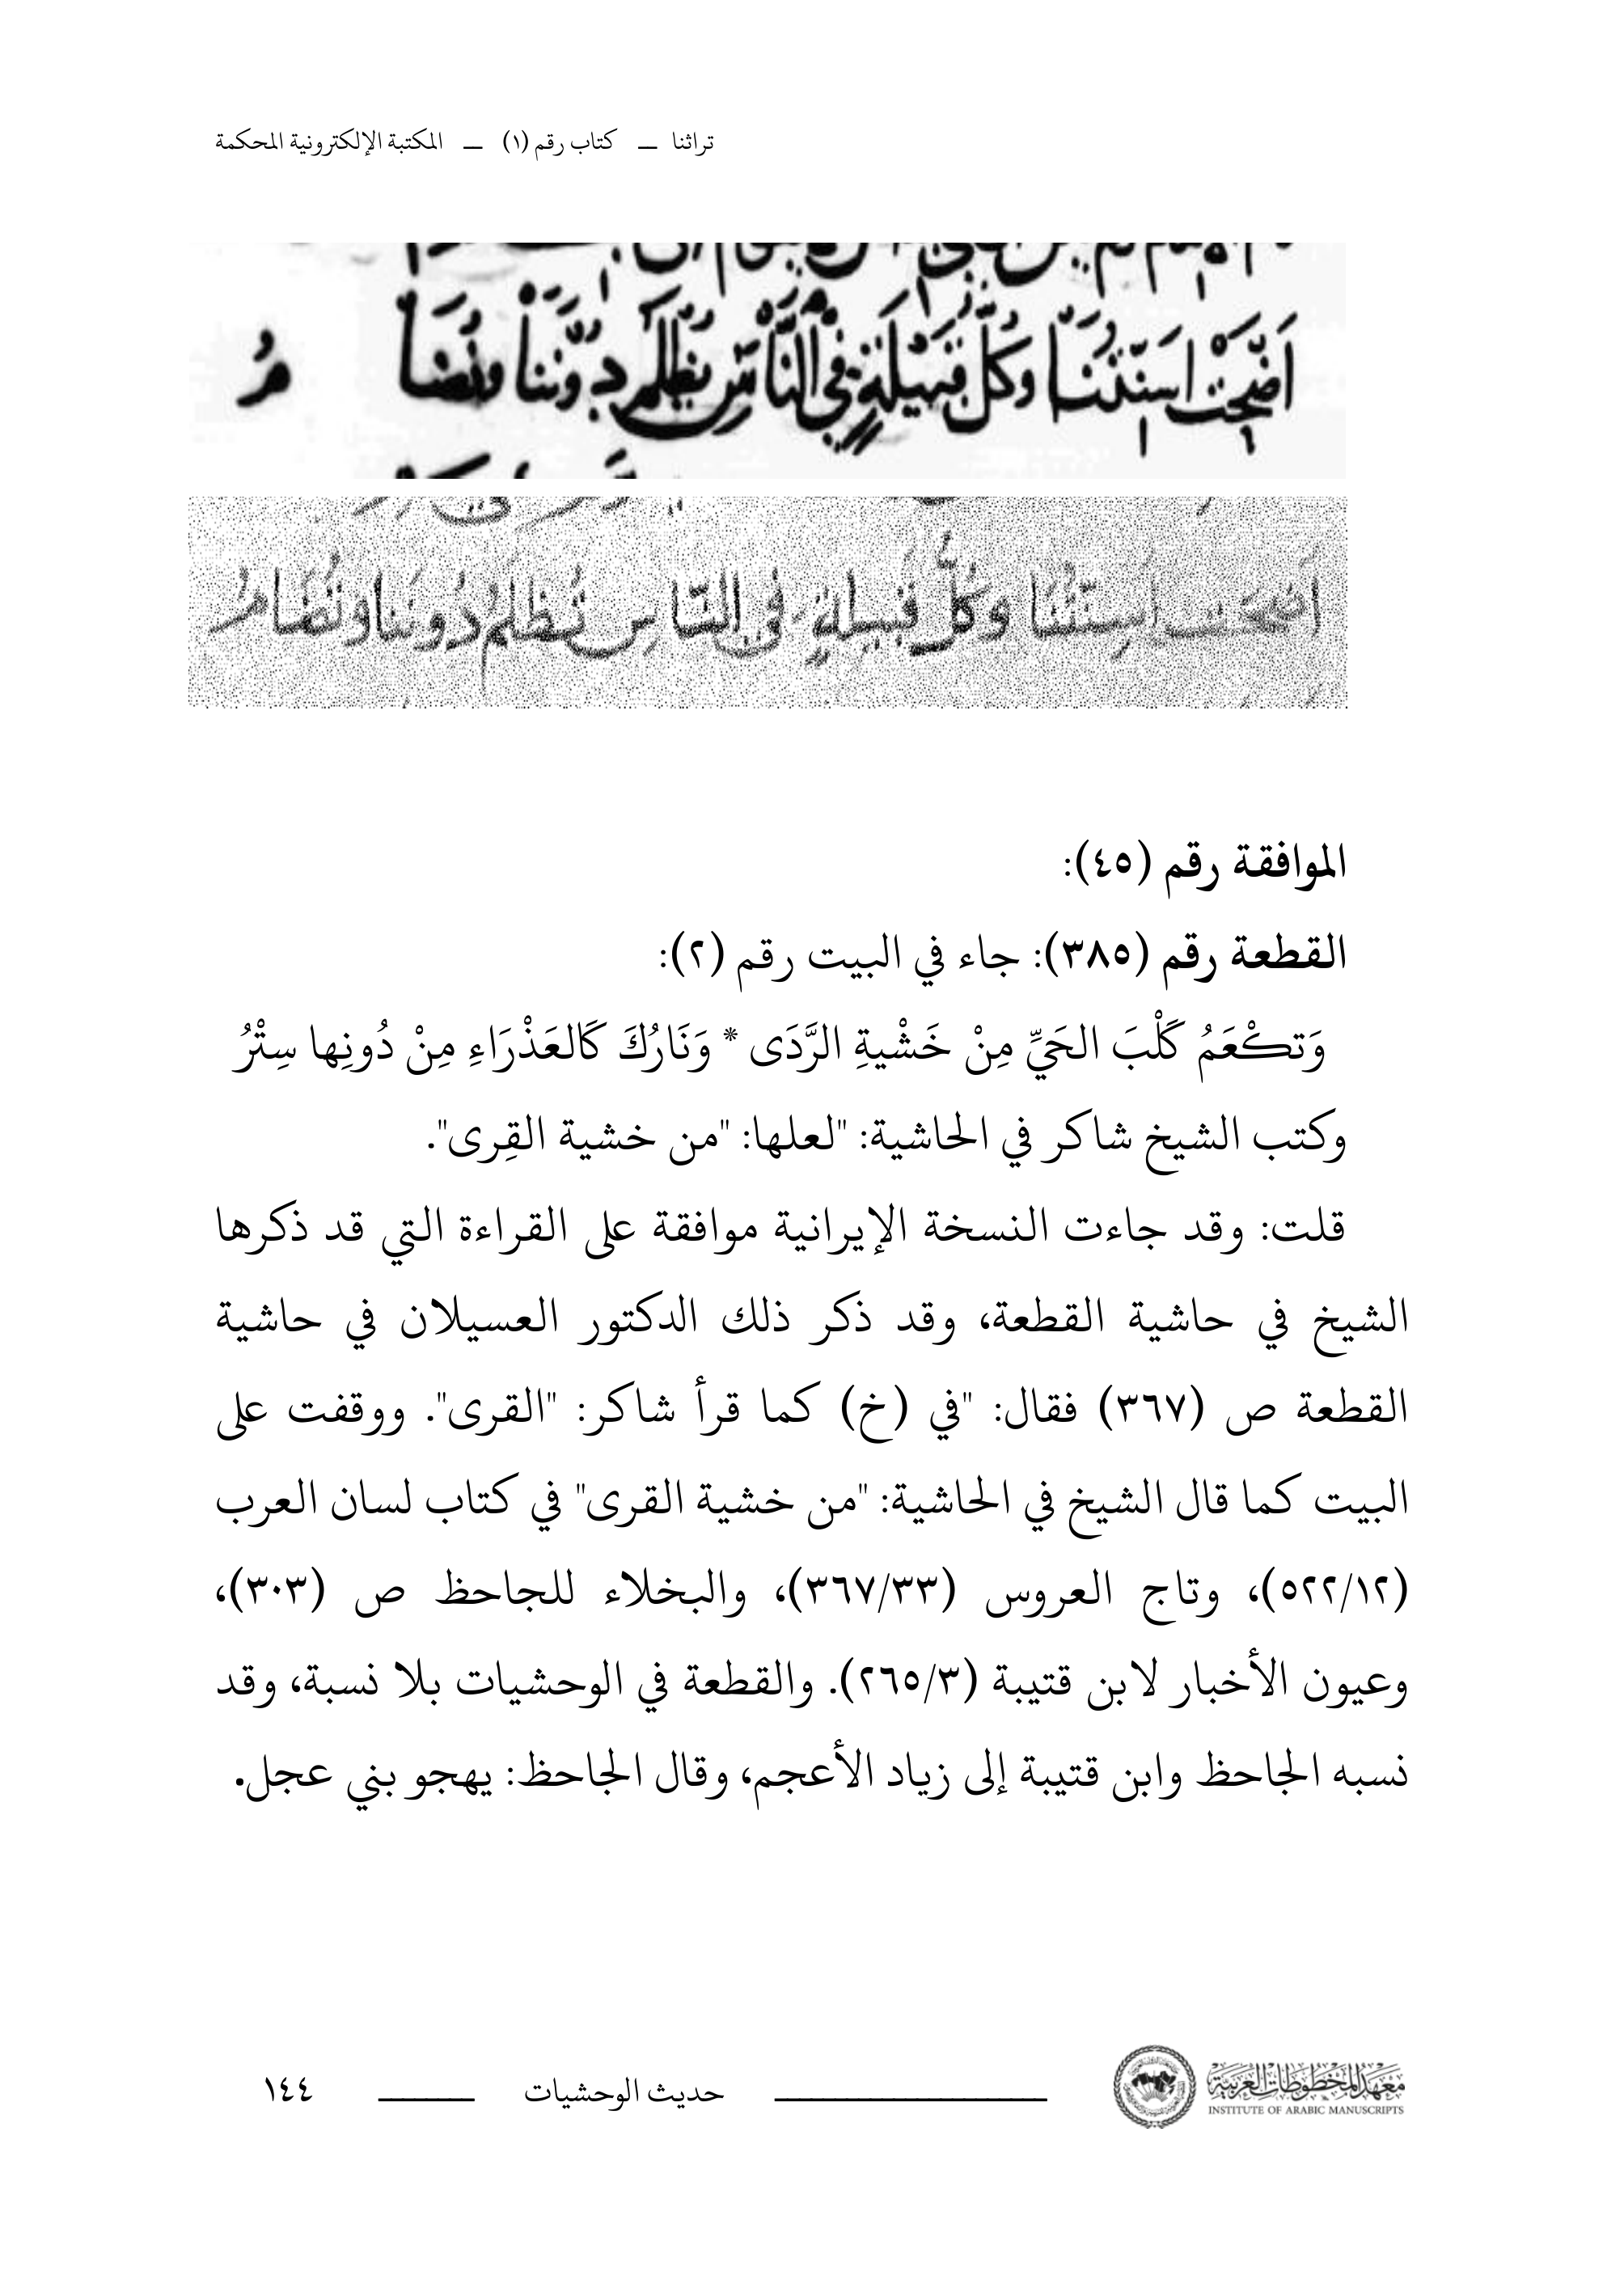 تراثنا — كتاب رقم (١) — المكتبة الإلكترونية المحكمة
اضحت اسنتنا وكل قبيلة في الناس تظلم دوننا ونضا مُ
أضحت أسنتنا وكُلّ قبيلةٍ في النّاسِ تُظلمُ دُونَنا ونُضَامُ
الموافقة رقم (٤٥):
القطعة رقم (٣٨٥): جاء في البيت رقم (٢):
وَتكْعَمُ كَلْبَ الحَيِّ مِنْ خَشْيةِ الرَّدَى * وَنَارُكَ كَالعَذْرَاءِ مِنْ دُونِها سِتْرُ
وكتب الشيخ شاكر في الحاشية: "لعلها: "من خشية القِرى".
قلت: وقد جاءت النسخة الإيرانية موافقة على القراءة التي قد ذكرها
الشيخ في حاشية القطعة، وقد ذكر ذلك الدكتور العسيلان في حاشية
القطعة ص (٣٦٧) فقال: "في (خ) كما قرأ شاكر: "القرى". ووقفت على
البيت كما قال الشيخ في الحاشية: "من خشية القرى" في كتاب لسان العرب
(٥٢٢/١٢)، وتاج العروس (٣٦٧/٣٣)، والبخلاء للجاحظ ص (٣٠٣)،
وعيون الأخبار لابن قتيبة (٢٦٥/٣). والقطعة في الوحشيات بلا نسبة، وقد
نسبه الجاحظ وابن قتيبة إلى زياد الأعجم، وقال الجاحظ: يهجو بني عجل.
معهد المخطوطات العربية
INSTITUTE OF ARABIC MANUSCRIPTS
حديث الوحشيات
١٤٤